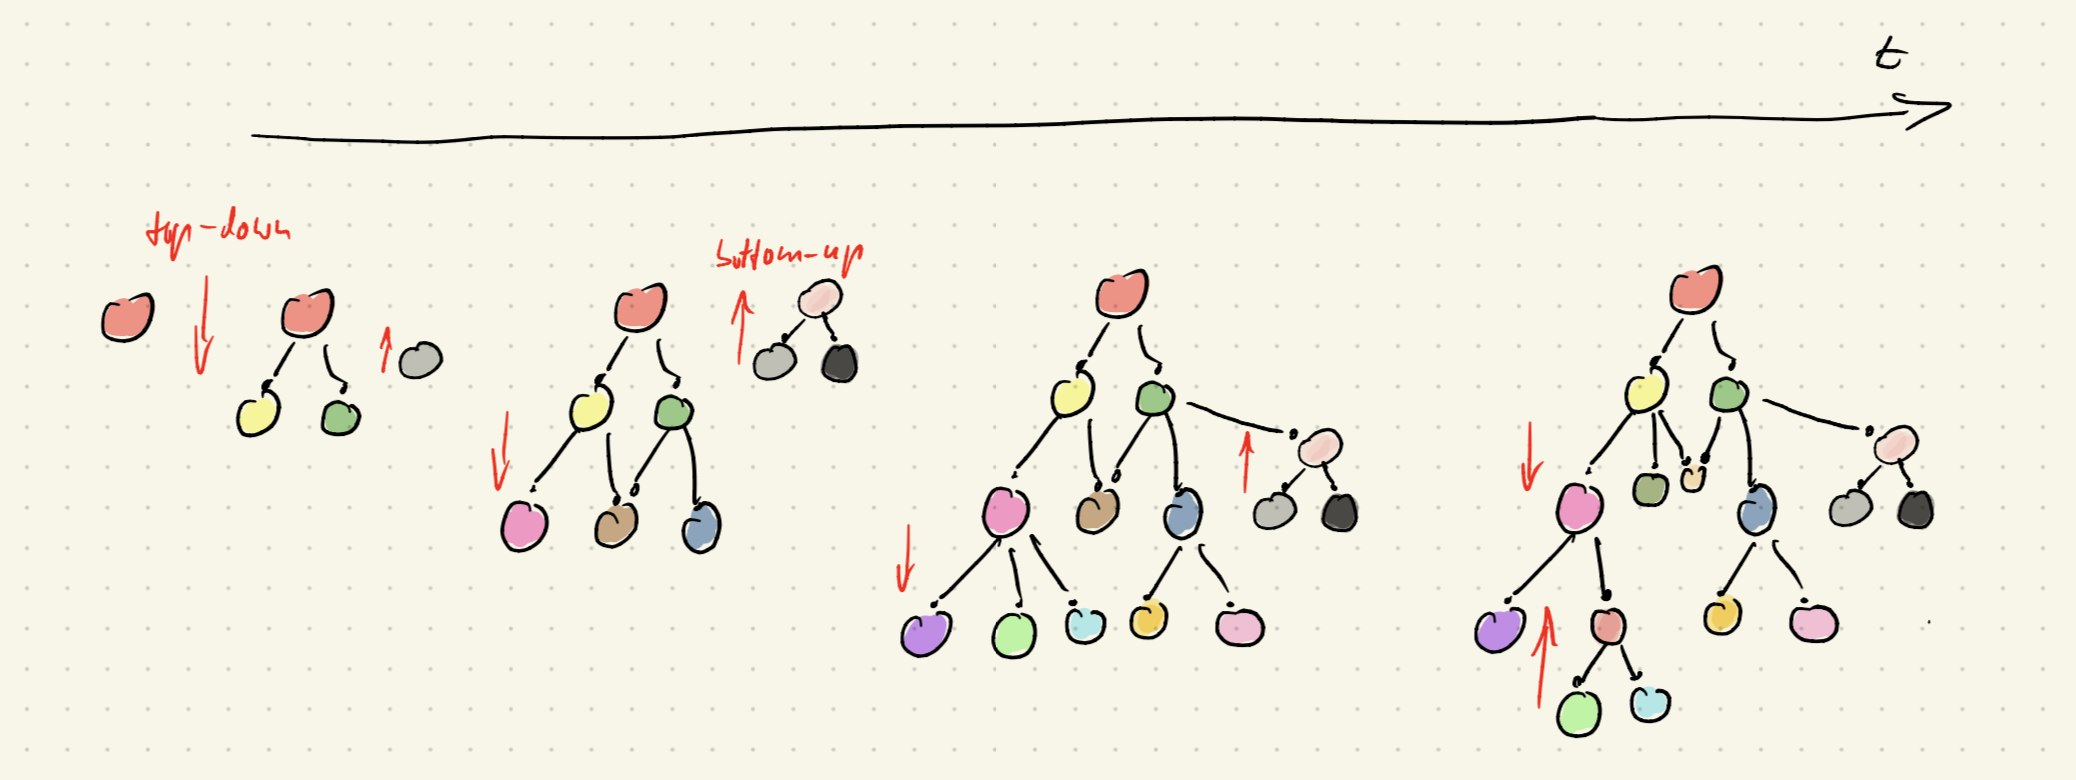 t
top-down
bottom-up